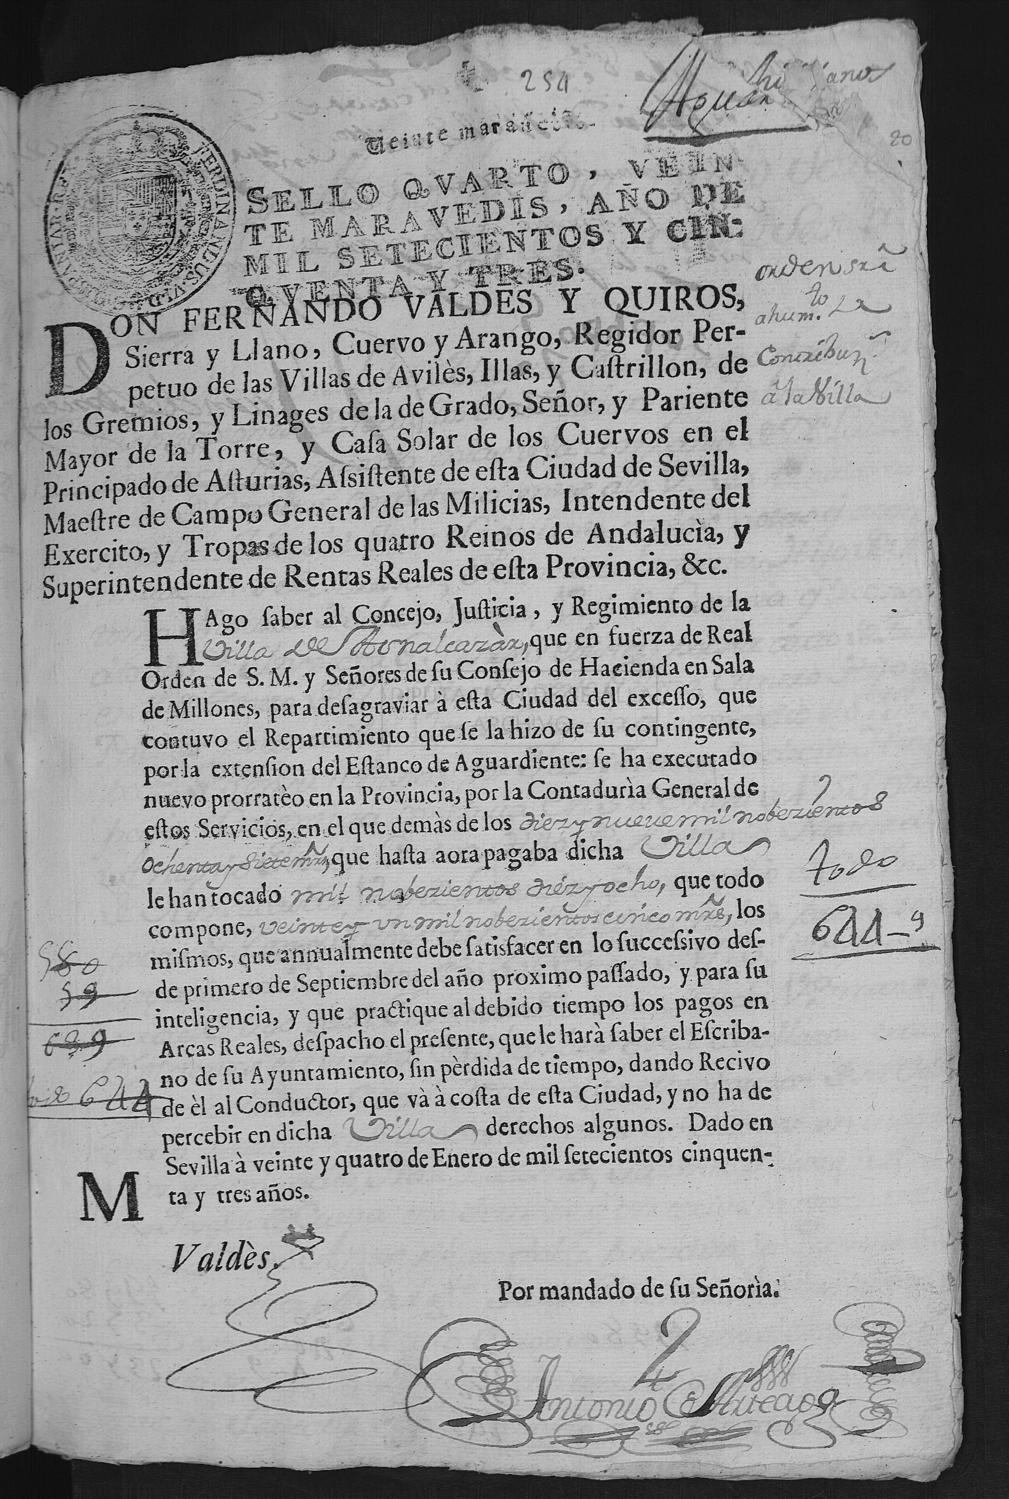 254
20
Veinte maravedis.
SELLO QVARTO, VEIN
TE MARAVEDIS, AÑO DE
MIL SETECIENTOS Y CIN-
QVENTA Y TRES.
DON FERNANDO VALDES Y QUIROS,
Sierra y Llano, Cuervo y Arango, Regidor Per-
petuo de las Villas de Avilès, Illas, y Caſtrillon, de
los Gremios, y Linages de la de Grado, Señor, y Pariente
Mayor de la Torre, y Caſa Solar de los Cuervos en el
Principado de Aſturias, Aſsiſtente de eſta Ciudad de Sevilla,
Maeſtre de Campo General de las Milicias, Intendente del
Exercito, y Tropas de los quatro Reinos de Andalucìa, y
Superintendente de Rentas Reales de eſta Provincia, &c.
HAgo ſaber al Concejo, Juſticia, y Regimiento de la
Villa de Aznalcazàr, que en fuerza de Real
Orden de S. M. y Señores de ſu Conſejo de Hacienda en Sala
de Millones, para deſagraviar à eſta Ciudad del exceſſo, que
contuvo el Repartimiento que ſe la hizo de ſu contingente,
por la extenſion del Eſtanco de Aguardiente: ſe ha executado
nuevo prorratèo en la Provincia, por la Contadurìa General de
eſtos Servicios, en el que demàs de los diez y nueve mil nobezientos
ochenta y siete mrs, que haſta aora pagaba dicha Villa
le han tocado mil nobezientos diéz y ocho, que todo
compone, veinte y un mil nobezientos cinco mrs, los
miſmos, que annualmente debe ſatisfacer en lo ſucceſſivo deſ-
de primero de Septiembre del año proximo paſſado, y para ſu
inteligencia, y que practique al debido tiempo los pagos en
Arcas Reales, deſpacho el preſente, que le harà ſaber el Eſcriba-
no de ſu Ayuntamiento, ſin pèrdida de tiempo, dando Recivo
de èl al Conductor, que và à coſta de eſta Ciudad, y no ha de
percebir en dicha Villa derechos algunos. Dado en
Sevilla à veinte y quatro de Enero de mil ſetecientos cinquen-
ta y tres años.
M
Valdès.
Por mandado de ſu Señorìa.
Antonio
orden
a la Villa
todo
644-9
580
59
639
todo 644